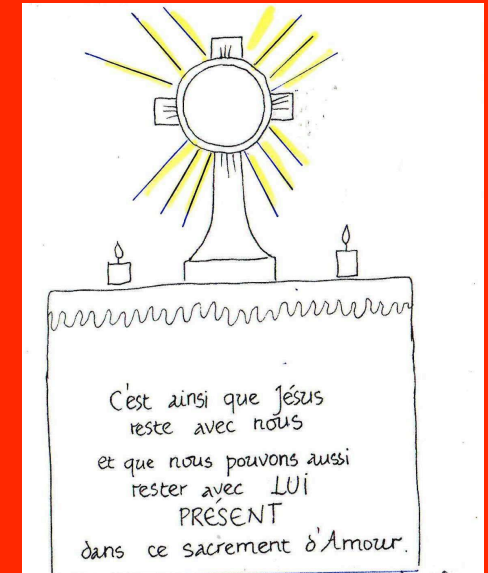 C'est ainsi que Jésus
reste avec nous
et que nous pouvons aussi
rester avec LUI
PRÉSENT
dans ce sacrement d'Amour.